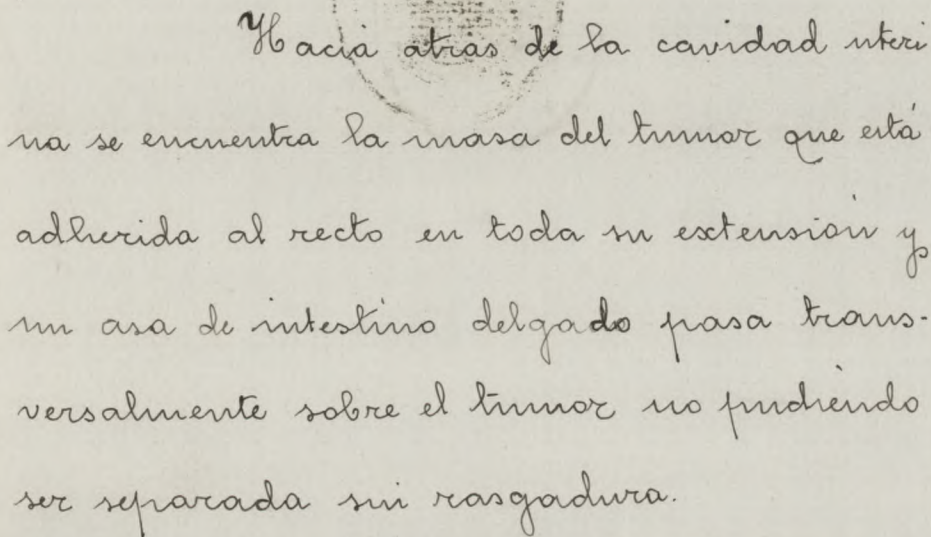 Hacia atras de la cavidad uteri
na se encuentra la masa del tumor que está
adherida al recto en toda su extensión y
un asa de intestino delgado pasa trans-
versalmente sobre el tumor no pudiendo
ser separada sin rasgadura.